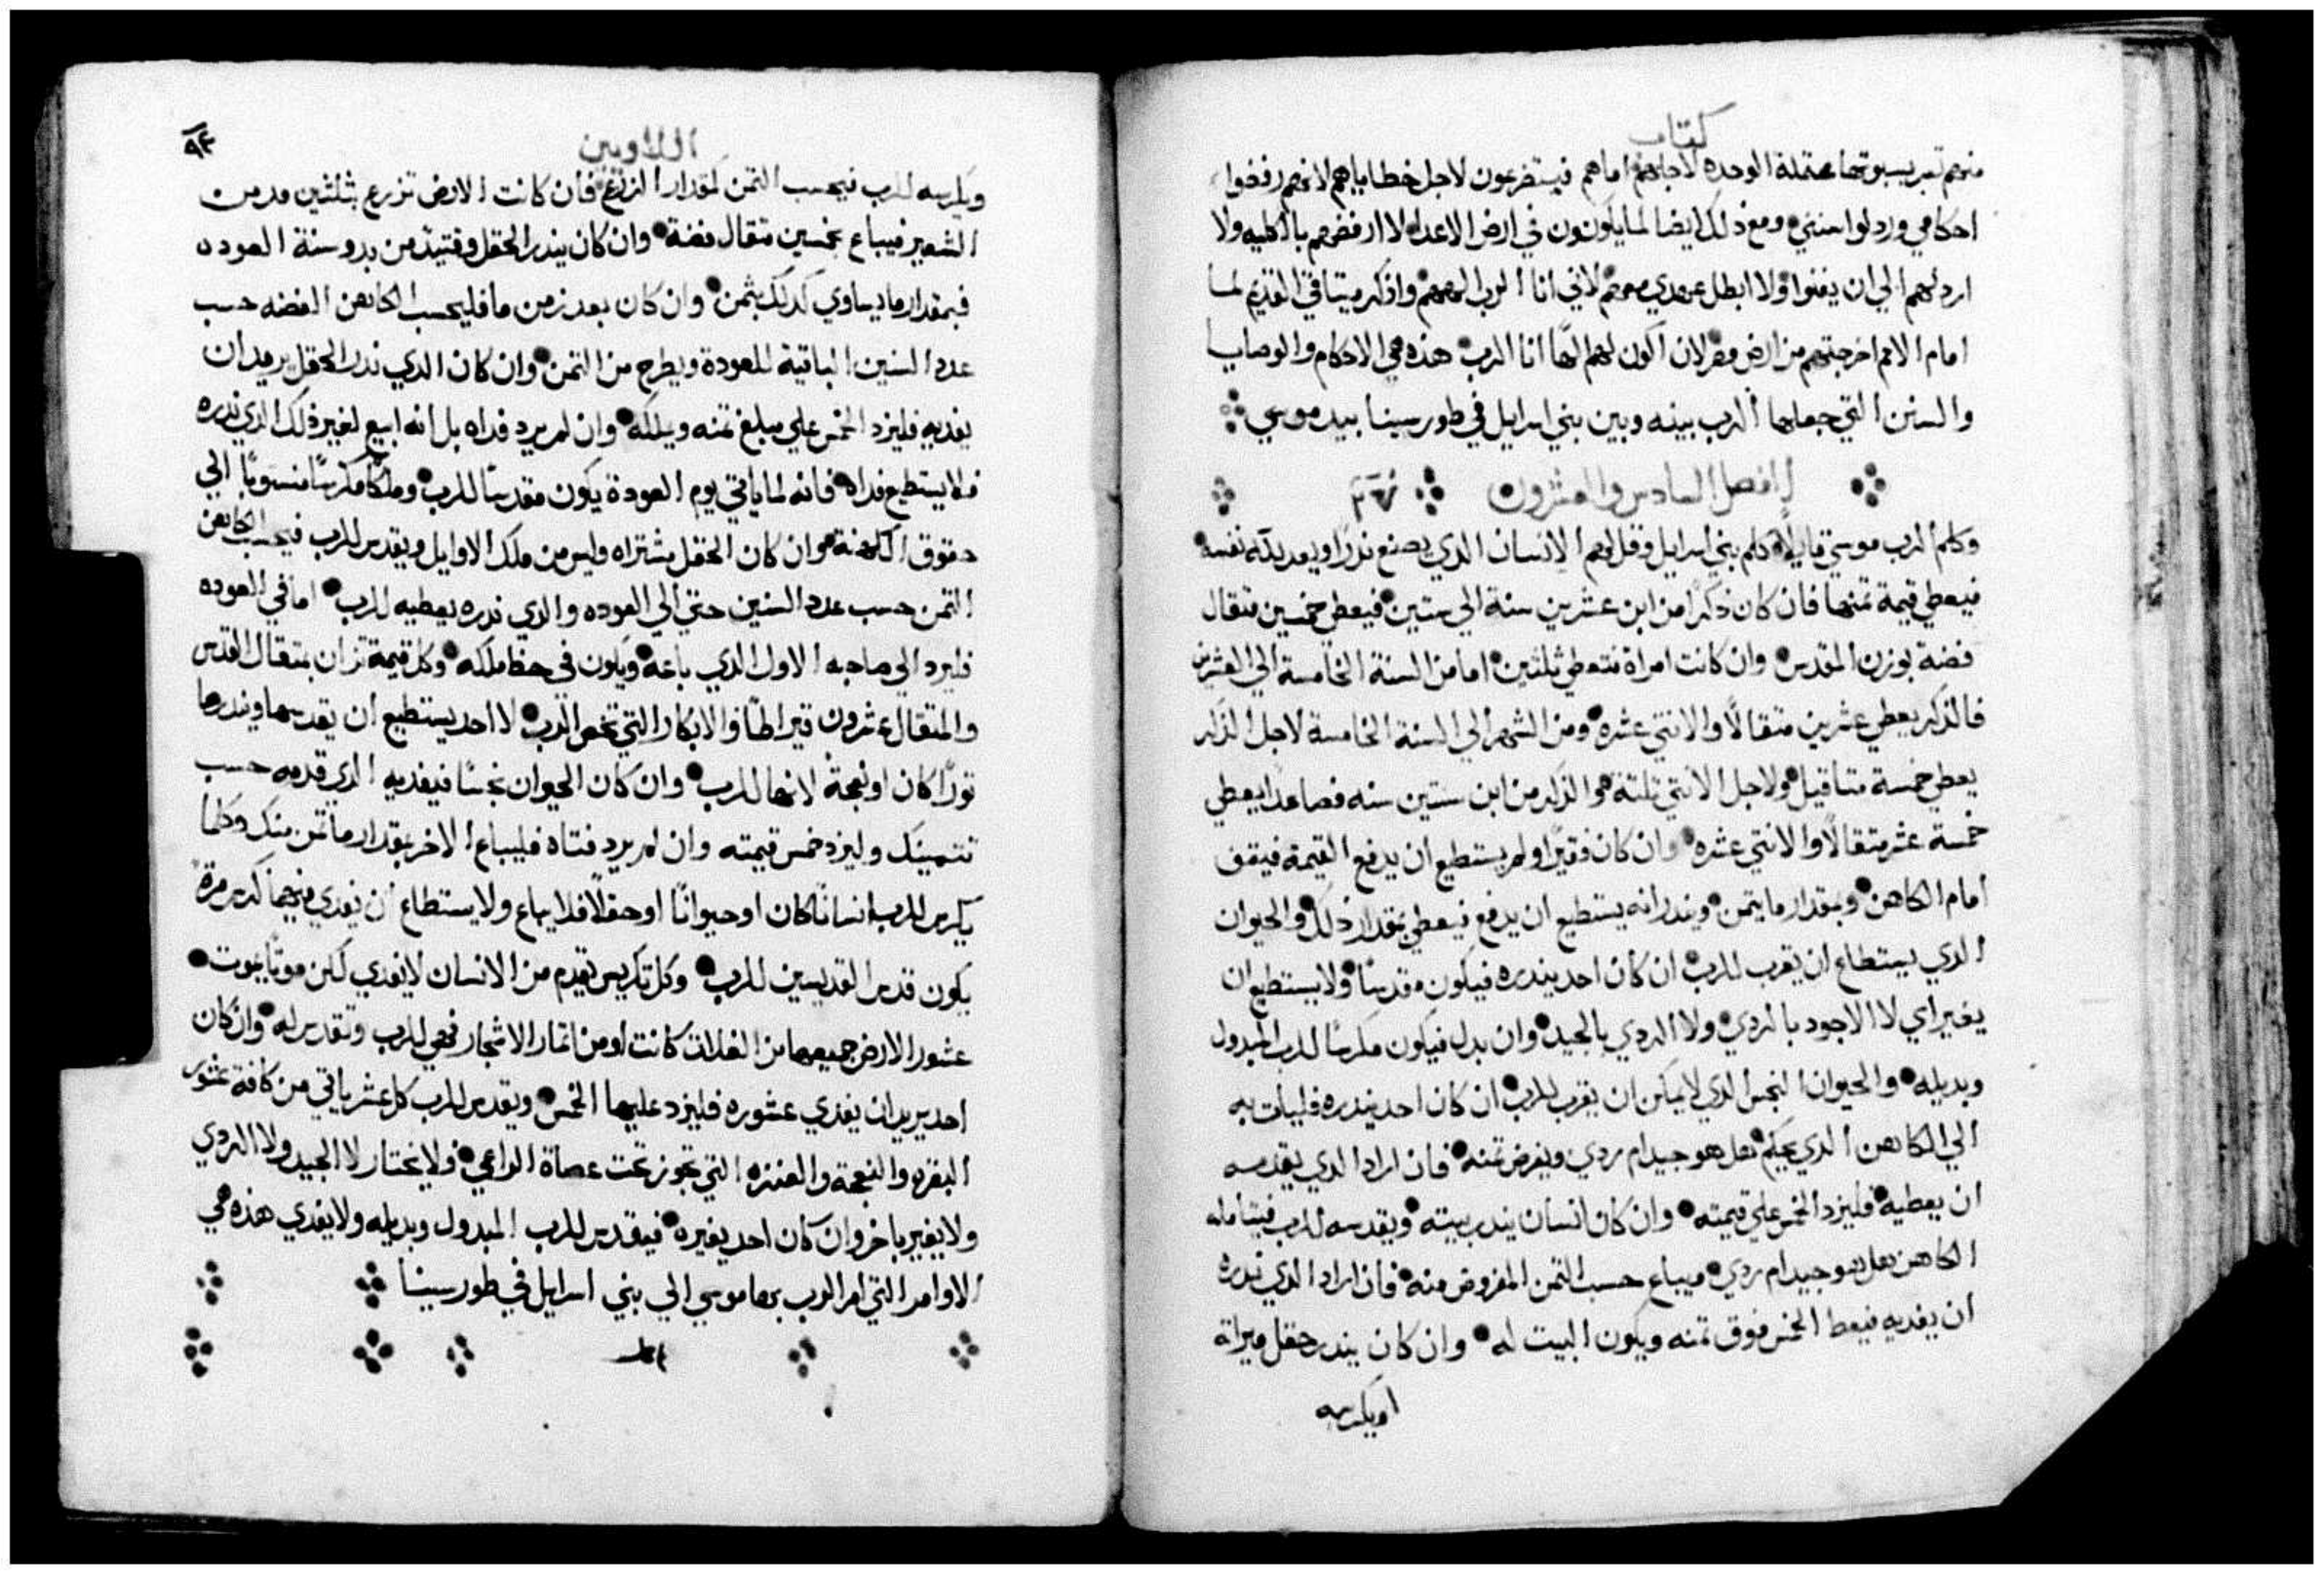 كتاب
منهم تسر بسبوتها محتملة الوحده لاجلهم اماهم فيستضرعون لاجل خطاياهم لانهم رفضوا
احكامي وردلوا سنني ومع ذلك ايضا لما يكونون في ارض الاعداء لا ارفضهم بالكليه ولا
اردلهم الي ان يفنوا ولا ابطل عهدي معهم لاني انا الرب الههم واذكر ميتاقي القديم لما
امام الامم اخرجتهم من ارض مصر لان اكون لهم الهًا انا الرب هذه هي الاحكام والوصايا
والسنن التي جعلها الرب بينه وبين بني اسرايل في طور سينا بيد موسي
الفصل السادس والعشرون
وكلم الرب موسي قايلًا كلم بني اسرايل وقل لهم الانسان الدي يصنع ندرًا ويعد لله نفسه
فيعطي قيمة تمنها فان كان ذكرًا من ابن عشرين سنة الي ستين فيعطي خمسين متقال
فضة بوزن المقدس وان كانت امراة فتعطي ثلثين اما من السنة الخامسة الي العشرين
فالذكر يعطي عشرين متقالًا والانتي عشره ومن الشهر الي السنة الخامسة لاجل الذكر
يعطي خمسة متاقيل ولاجل الانتي ثلثة والذكر من ابن ستين سنه فصاعدا يعطي
خمسة عشر متقالًا والانتي عشره وان كان فقيرًا ولم يستطيع ان يدفع القيمة فيقف
امام الكاهن وبقدار ما يتمن وينذر انه يستطيع ان يدفع فيعطي بمقدار ذلك والحيوان
الدي يستطاع ان يقرب للرب ان كان احد يندره فيكون مقدسًا ولا يستطيع ان
يغير اي لا الاجود بالردي ولا الردي بالجيد وان بدل فيكون مكرسًا للرب المبدول
وبديله والحيوان النجس الدي لا يمكن ان يقرب للرب ان كان احد يندره فليات به
الي الكاهن الدي يحكم هل هو جيد ام ردي ويفرض تمنه فان اراد الدي يقدسه
ان يعطيه فليزد الخمس علي قيمته وان كان انسان يندر بيته ويقدسه للرب فيتامله
الكاهن هل هو جيد ام ردي فيباع حسب التمن المفروض منه فان اراد الدي ندره
ان يفديه فيعط الخمس فوق تمنه ويكون البيت له وان كان يندر حقل ميراته
اويكرسه
اللاويين
٩٤
ويكرسه للرب فيحسب التمن لمقدار الزرع فان كانت الارض تزرع بثلثين مد من
الشعير فيباع بخمسين متقال فضة وان كان يندر الحقل وقتيدٍ من بدو سنة العوده
فبمقدار ما يساوي كدلك يثمن وان كان بعد زمن ما فليحسب الكاهن الفضه حسب
عدد السنين الباقية للعودة ويطرح من التمن وان كان الدي ندر الحقل يريد ان
يفديه فليزد الخمس علي مبلغ تمنه ويملكه وان لم يرد فداه بل انه ابيع لغير ذلك الدي ندره
فلا يستطيع فداه فانه لما ياتي يوم العودة يكون مقدسًا للرب وملكًا مكرسًا منسوبًا الي
حقوق الكهنة وان كان الحقل مشتراه وليس من ملك الاوايل ويقدس للرب فيحسب الكاهن
التمن حسب عدد السنين حتي الي العوده والدي ندره يعطيه للرب اما في العوده
فليرد الي صاحبه الاول الدي باعه ويكون في حظ ملكه وكل قيمة تزان بمتقال القدس
والمتقال عشرون قيراطًا والابكار التي تخص الرب لا احد يستطيع ان يقدسها ويندرها
تورًا كان او نعجة لانها للرب وان كان الحيوان نجسًا فيفديه الدي قدمه حسب
تتمينك وليزد خمس قيمته وان لم يرد فتاه فليباع الاخر بمقدار ما تمن منك وكلما
يكرس للرب انسانًا كان او حيوانًا او حقلًا فلا يباع ولا يستطاع ان يفدي فمهما كرس مرة
يكون قدس القديسين للرب وكل تكريس يقدم من الانسان لا يفدي لكن موتًا يموت
عشور الارض جميعها من الغلات كانت او من اتمار الاشجار فهي للرب وتقدس له وان كان
احد يريد ان يفدي عشوره فليزد عليها الخمس ويقدس للرب كل عشر ياتي من كافة عشور
البقره والنعجة والعنزه التي تجوز تحت عصاة الراعي ولا يختار لا الجيد ولا الردي
ولا يغير باخر وان كان احد يغيره فيقدس للرب المبدول وبديله ولا يفدي هذه هي
الاوامر التي امر الرب بها موسي الي بني اسرايل في طور سينا